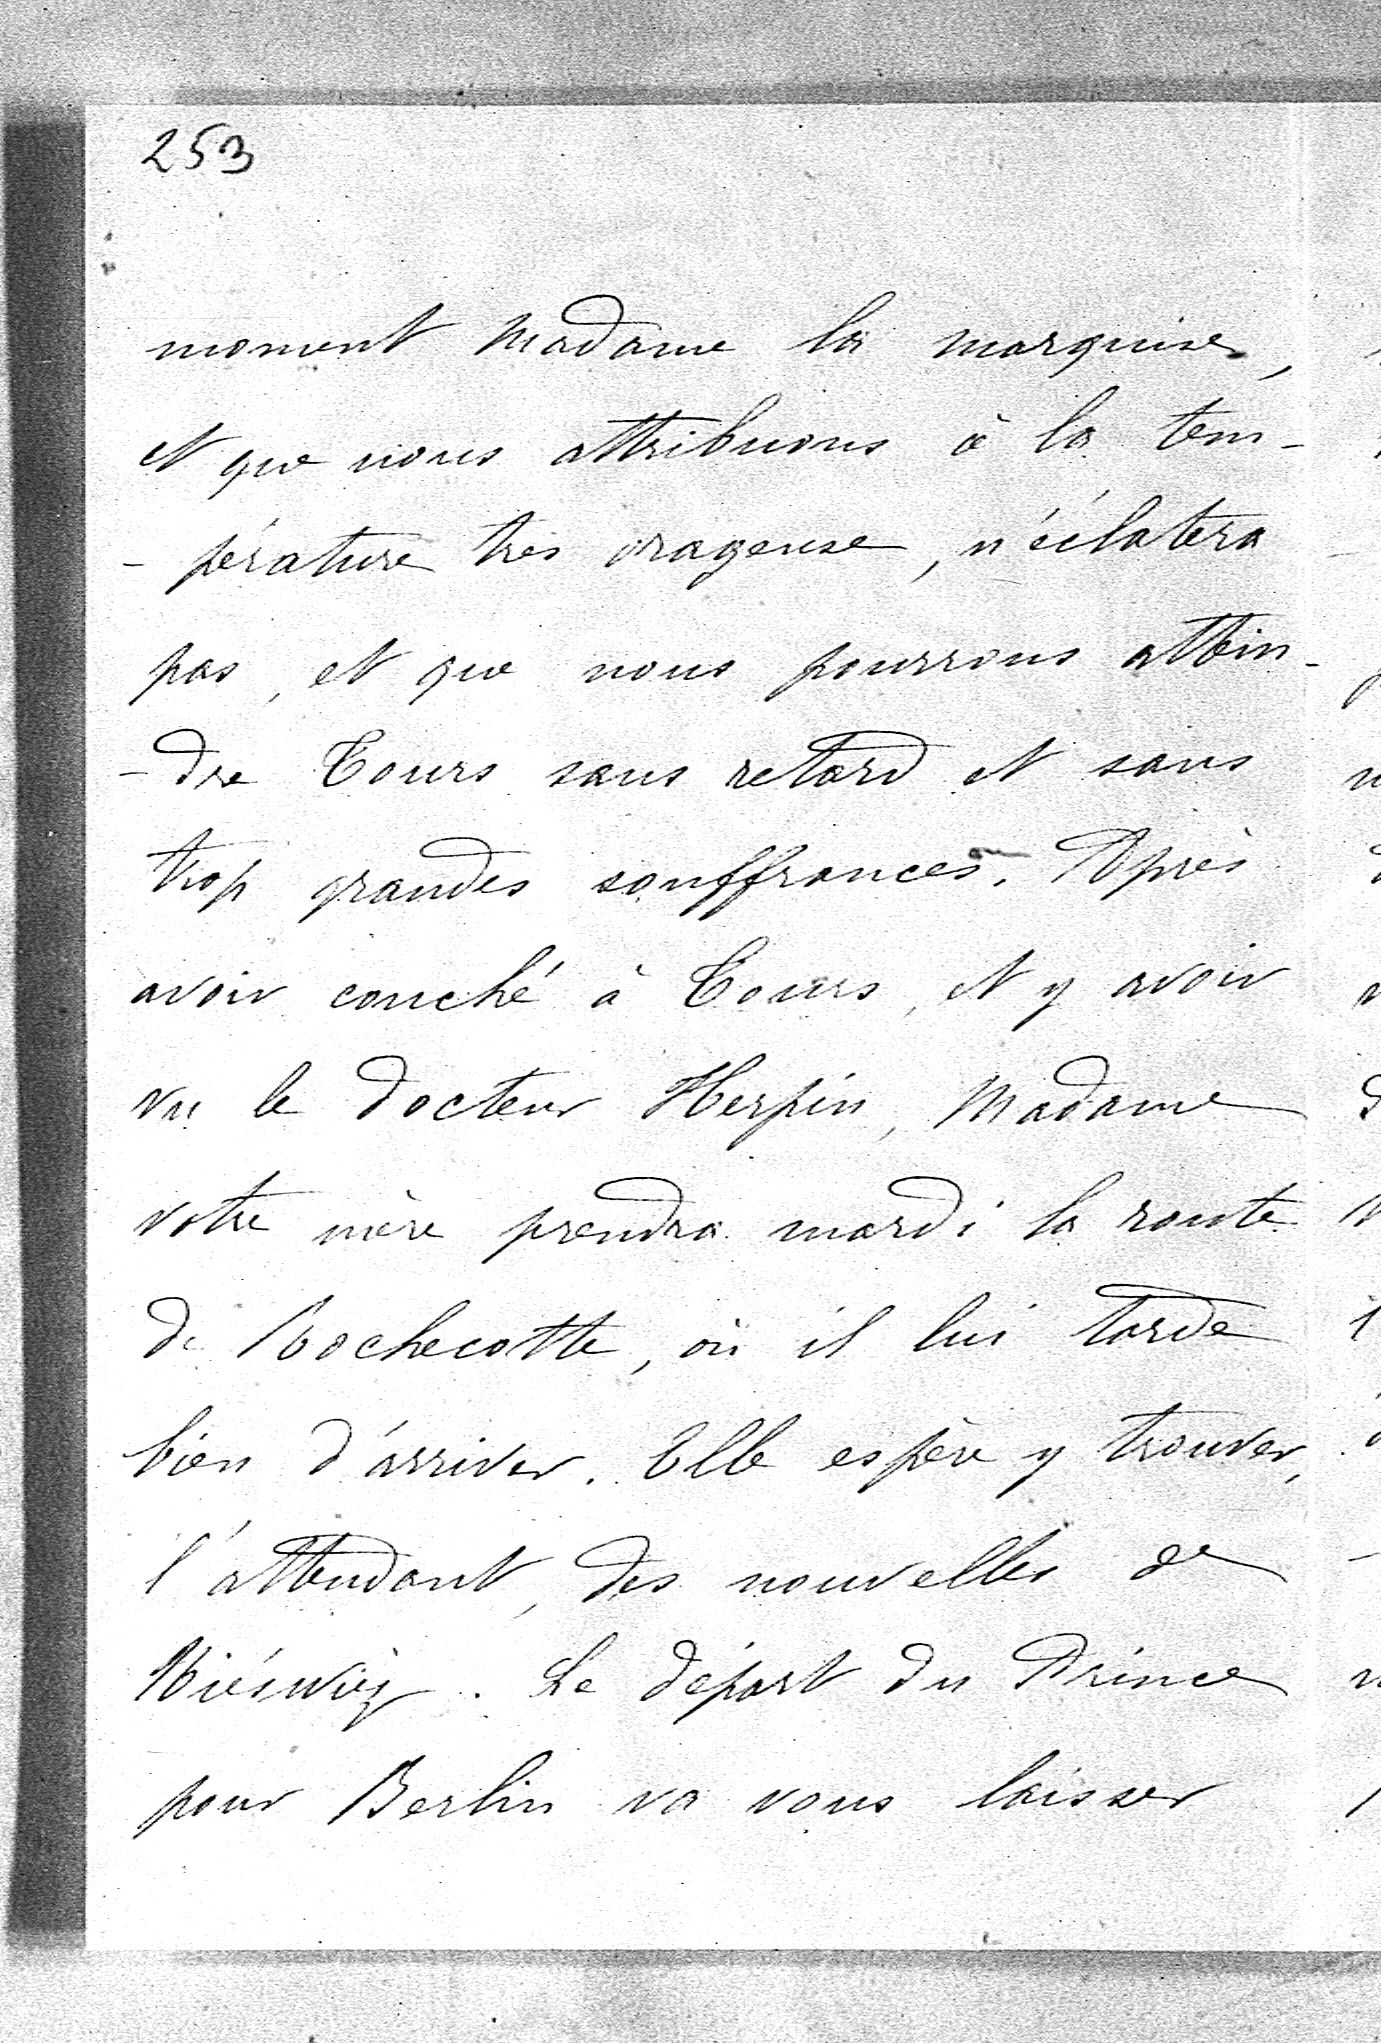 253
moment Madame la marquise,
et que nous attribuons à la tem-
- pérature très orageuse, n'éclatera
pas, et que nous pourrons attein-
- dre Tours sans retard et sans
trop grandes souffrances. Après
avoir couché à Tours, et y avoir
vu le docteur Herpin, Madame
votre mère prendra mardi la route
de Rochecotte, où il lui tarde
bien d'arriver. Elle espère y trouver,
l'attendant, des nouvelles de
Niéswiéj. Le départ du Prince
pour Berlin va vous laisser